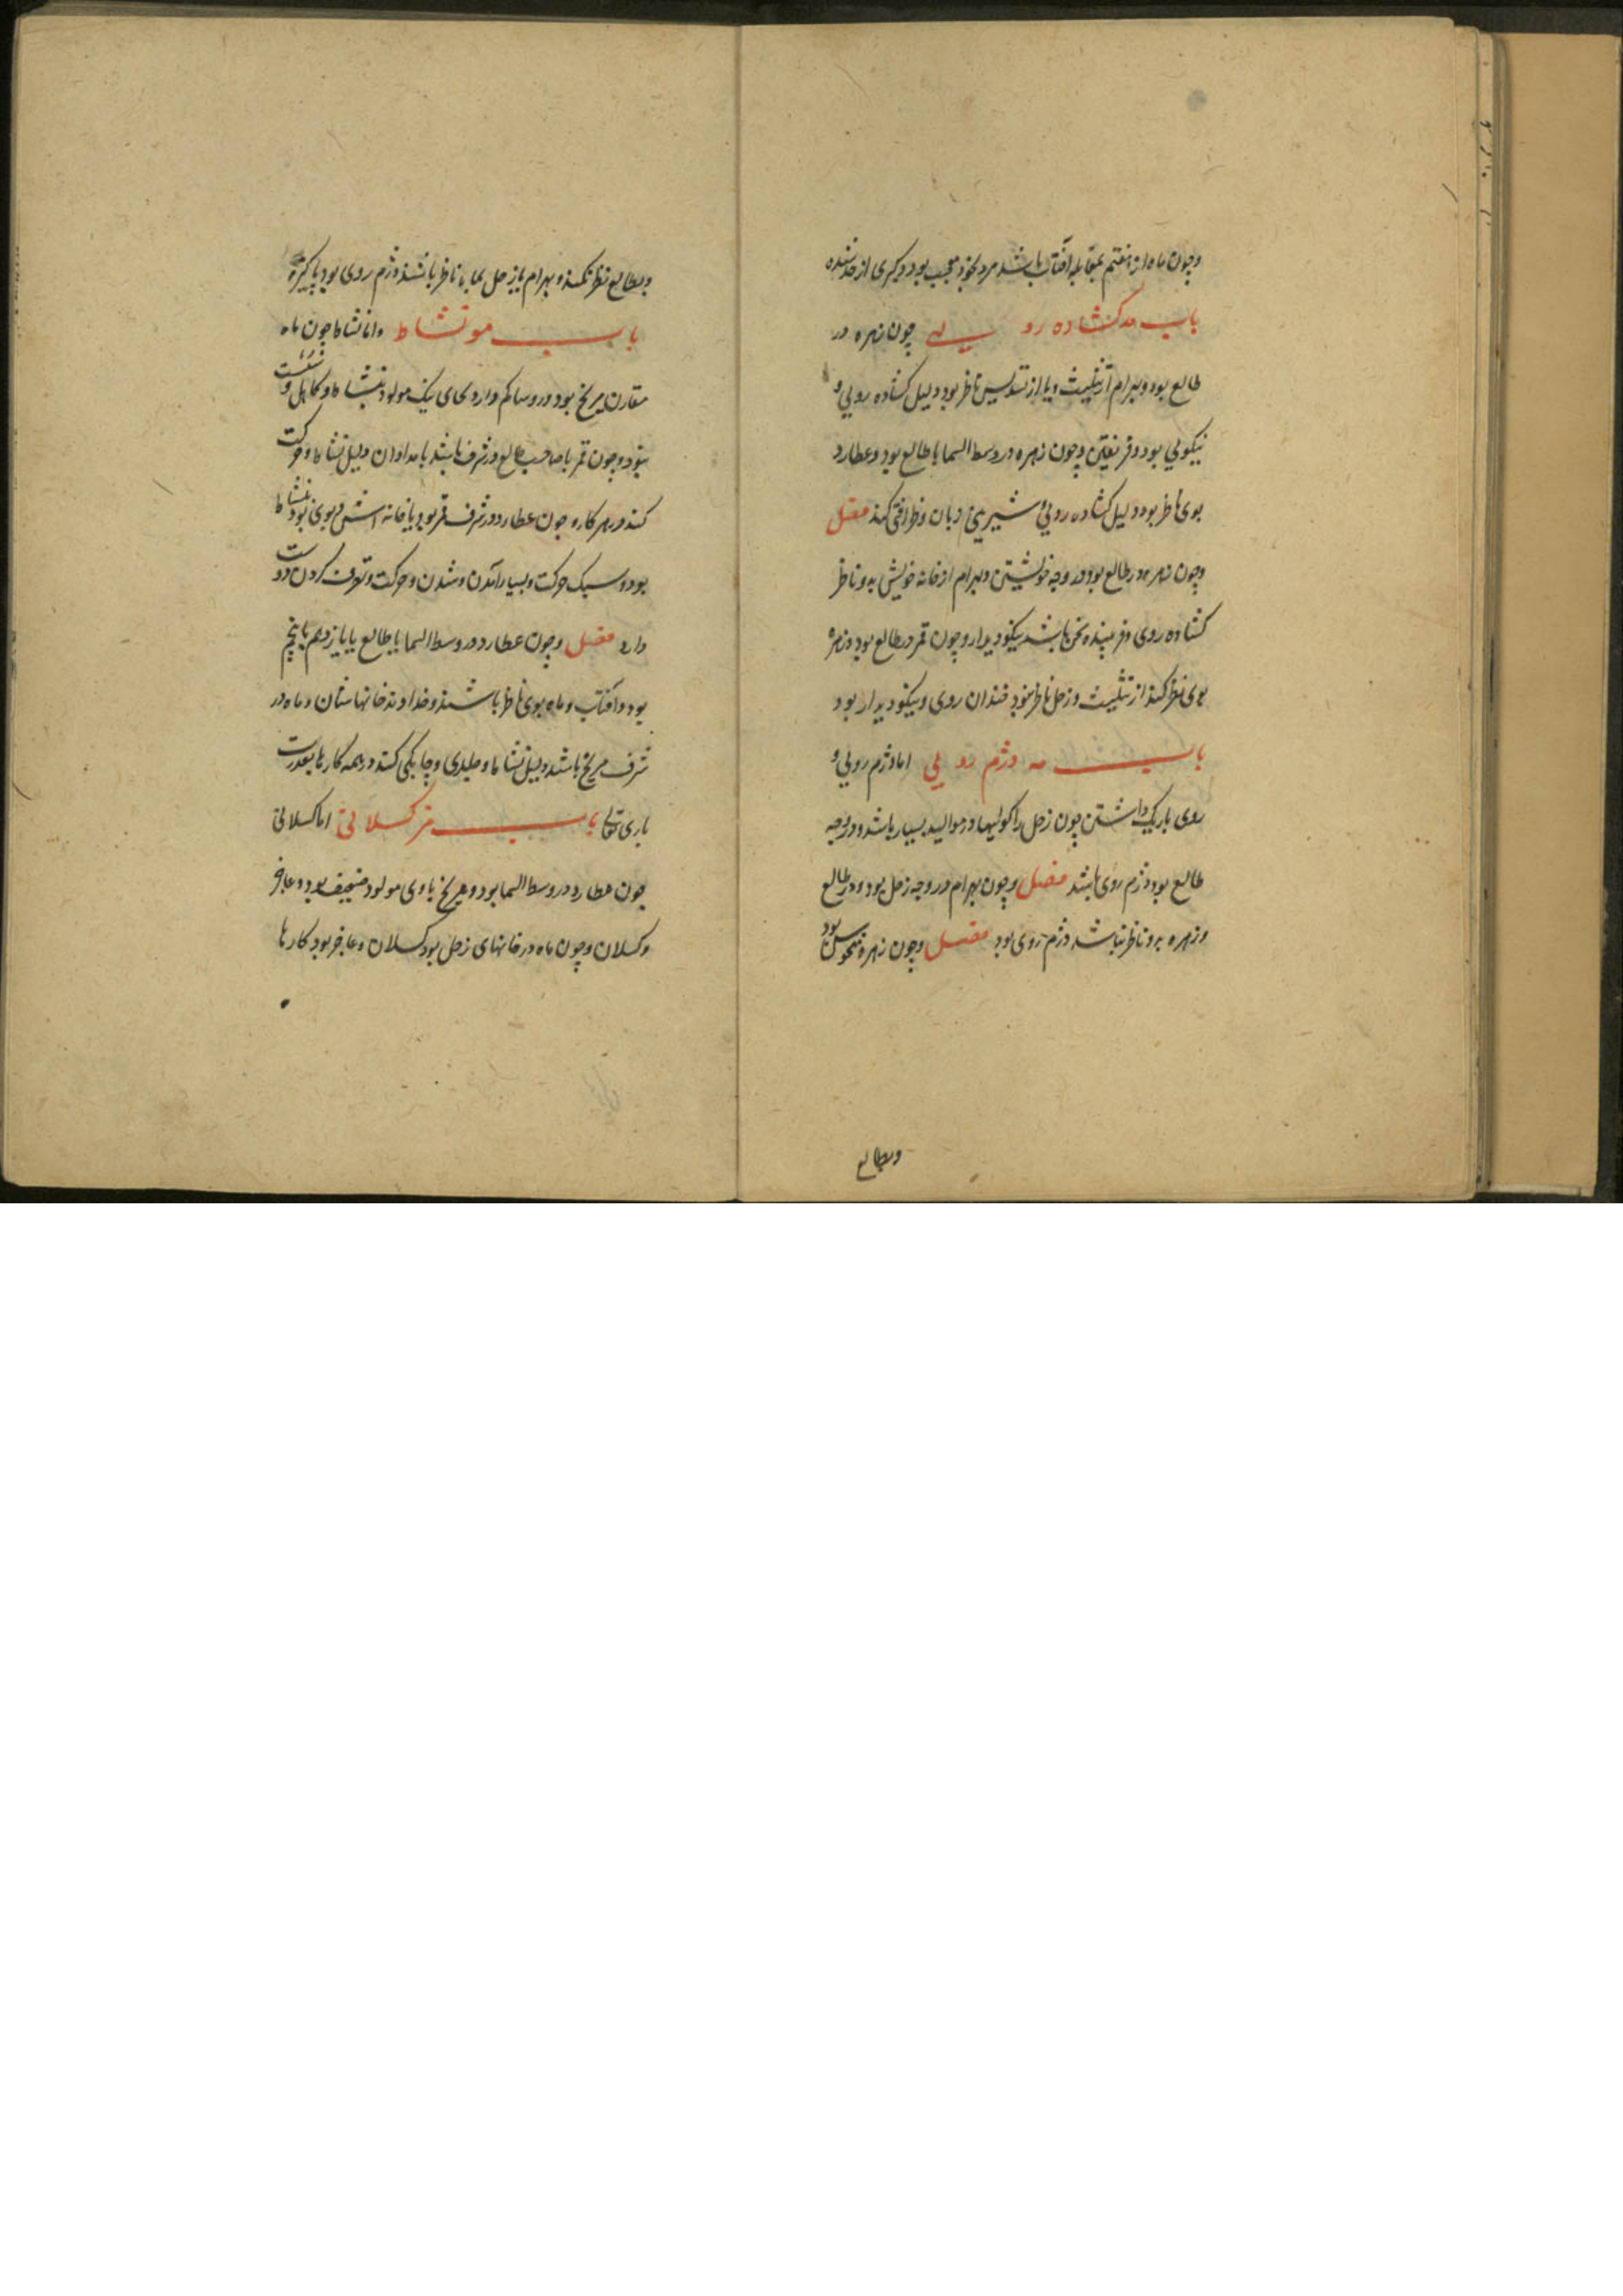 وچون ماه از هفتم بمقابله آفتاب باشد مرد بخود معجب بود و کبری از حد شده
باب مد کشاده رویی چون زهره در
طالع بود و بهرام از تثلیث و یا از تسدیس ناظر بود دلیل کشاده رویی و
نیکویی بود و چون زهره در وسط السما یا طالع بود و عطارد
بوی ناظر بود دلیل کشاده رویی شیرین زبان و ظرافتی کند فصل
وچون زهره در طالع بود در وجه خویشتن و بهرام از خانه خویش به و ناظر
کشاده روی و فریبنده سخن باشد نیکو دیدار و چون قمر در طالع بود و زهره
بوی نظر کند از تثلیث و زحل ناظر نبود خندان روی و نیکو دیدار بود
باب مه دژم رویی اما دژم رویی و
روی باریک داشتن چون زحل را در موالید بسیار باشد و در وجه
طالع بود دژم روی باشد فصل وچون بهرام در وجه زحل بود و در طالع
وزهره برو ناظر نباشد دژم روی بود فصل وچون زهره منحوس بود
وبطالع
وبطالع نظر نکند و بهرام یا زحل بما ناظر باشند دژم روی بود پاکیزه
باب مو نشاط واما نشاط چون ماه
مقارن مریخ بود در وسط مولود بنشاط و کاهل و سست
بود وچون قمر با صاحب طالع در شرف باشد بامدادان دلیل نشاط و حرکت
کند در هر کار و چون عطارد در شرف قمر بود یا خانه اش و بوی بود بنشاط
بود و سبک حرکت و بسیار آمدن و شدن و حرکت و تصرف کردن دوست
دارد فصل وچون عطارد در وسط السما یا طالع یا یازدهم یا پنجم
بود و آفتاب و ماه بوی ناظر باشند و خداوند خانهاشان و ماه در
شرف مریخ باشد دلیل نشاط و جلدی و چابکی کند در همه کارها بقدرت
باری تعالی باب مز کسلانی اما کسلانی
چون عطارد در وسط السما بود و مریخ باوی مولود ضعیف بود و عاجز
وکسلان وچون ماه در خانهای زحل بود کسلان و عاجز بود کارها